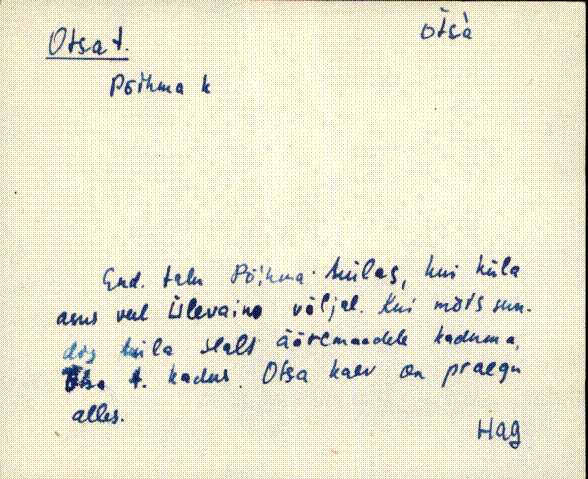 Otsa t.
otsà
Põihma k
End. talu Põihma külas, kui küla
asus veel Ülevaino väljal. Kui mõis sun-
dis küla sealt ääremaadele kaduma,
Otsa t. kadus. Otsa kaev on praegu
alles.
Hag